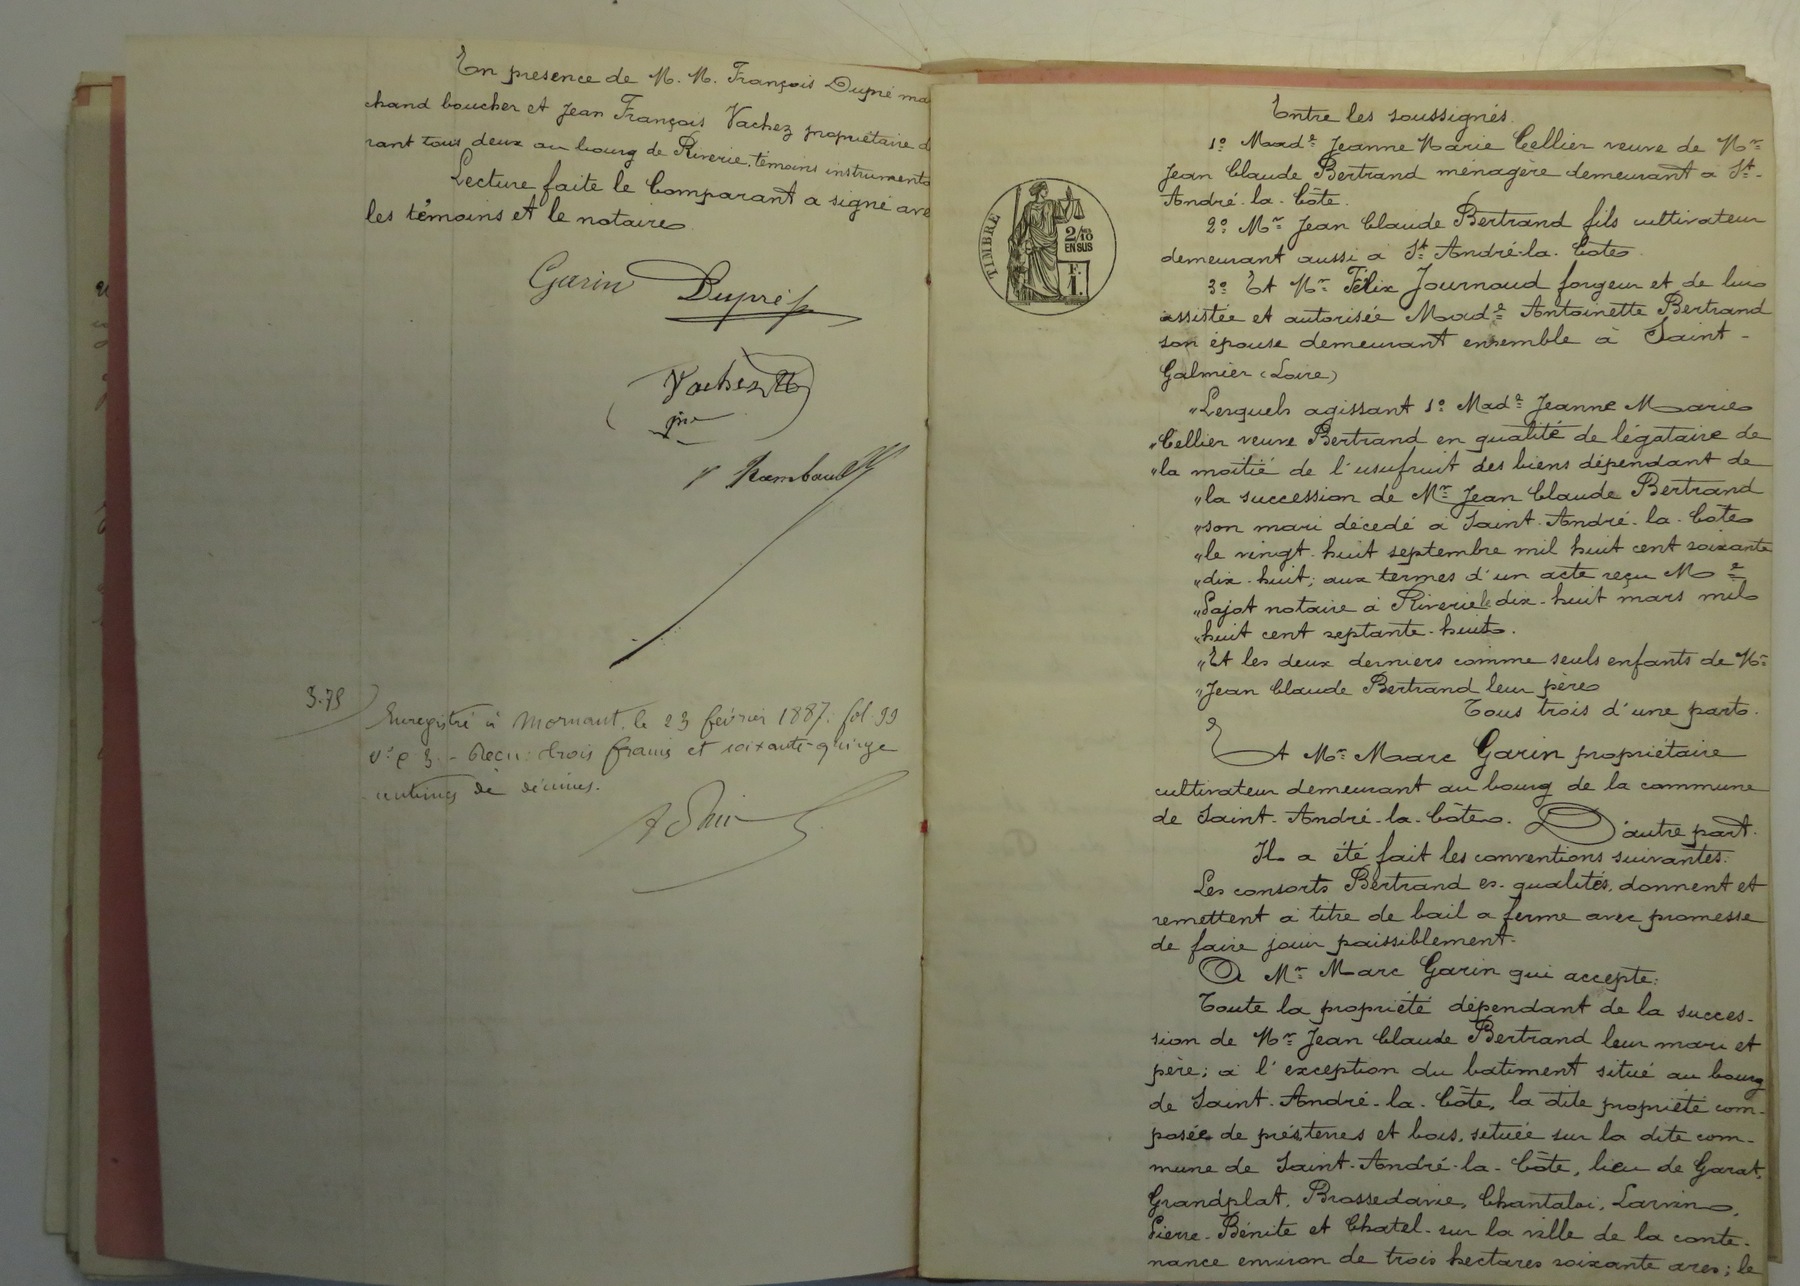 En présence de M. M. François Dupré ma
chand boucher et Jean François Vachez propriétaire d
rant tous deux au bourg de Riverie, témoins instrumenta
Lecture faite le Comparant a signé ave
les témoins et le notaire
Garin Dupré
Vachez
Rambault
3.75
Enregistré à Mornant, le 23 février 1887. fol 99
v° c 3 - Reçu: trois francs et soixante-quinze
centimes décimes.
TIMBRE
2/10
EN SUS
F.
1.
Entre les soussignés.
1° Made Jeanne Marie Cellier veuve de Mr
Jean Claude Bertrand ménagère demeurant à St-
André-la-Côte.
2° Mr Jean Claude Bertrand fils cultivateur
demeurant aussi à St André-la-Côte
3° Et Mr Félix Journoud forgeur et de lui
assistée et autorisée Made Antoinette Bertrand
son épouse demeurant ensemble à Saint-
Galmier (Loire)
"Lesquels agissant 1° Made Jeanne Marie
"Cellier veuve Bertrand en qualité de légataire de
"la moitié de l'usufruit des biens dépendant de
"la succession de Mr Jean Claude Bertrand
"son mari décédé à Saint-André-la-Côte
"le vingt-huit septembre mil huit cent soixante
"dix-huit; aux termes d'un acte reçu Me
"Pajot notaire à Riverie le dix-huit mars mil
"huit cent septante-huit.
"Et les deux derniers comme seuls enfants de Mr
"Jean Claude Bertrand leur père
Tous trois d'une part.
Et Mr Marc Garin propriétaire
cultivateur demeurant au bourg de la commune
de Saint-André-la-Côte. D'autre part.
Il a été fait les conventions suivantes:
Les consorts Bertrand es-qualités, donnent et
remettent à titre de bail a ferme avec promesse
de faire jouir paissiblement.
A Mr Marc Garin qui accepte:
Toute la propriété dépendant de la succes-
sion de Mr Jean Claude Bertrand leur mari et
père; à l'exception du batiment situé au bourg
de Saint-André-la-Côte, la dite propriété com-
posée de prés, terres et bois, située sur la dite com-
mune de Saint-André-la-Côte, lieu de Garat,
Grandplat, Brossedavie, Chantaloi, Larvin,
Pierre-Bénite et Chatel-sur la ville de la conte-
nance environ de trois hectares soixante ares; le